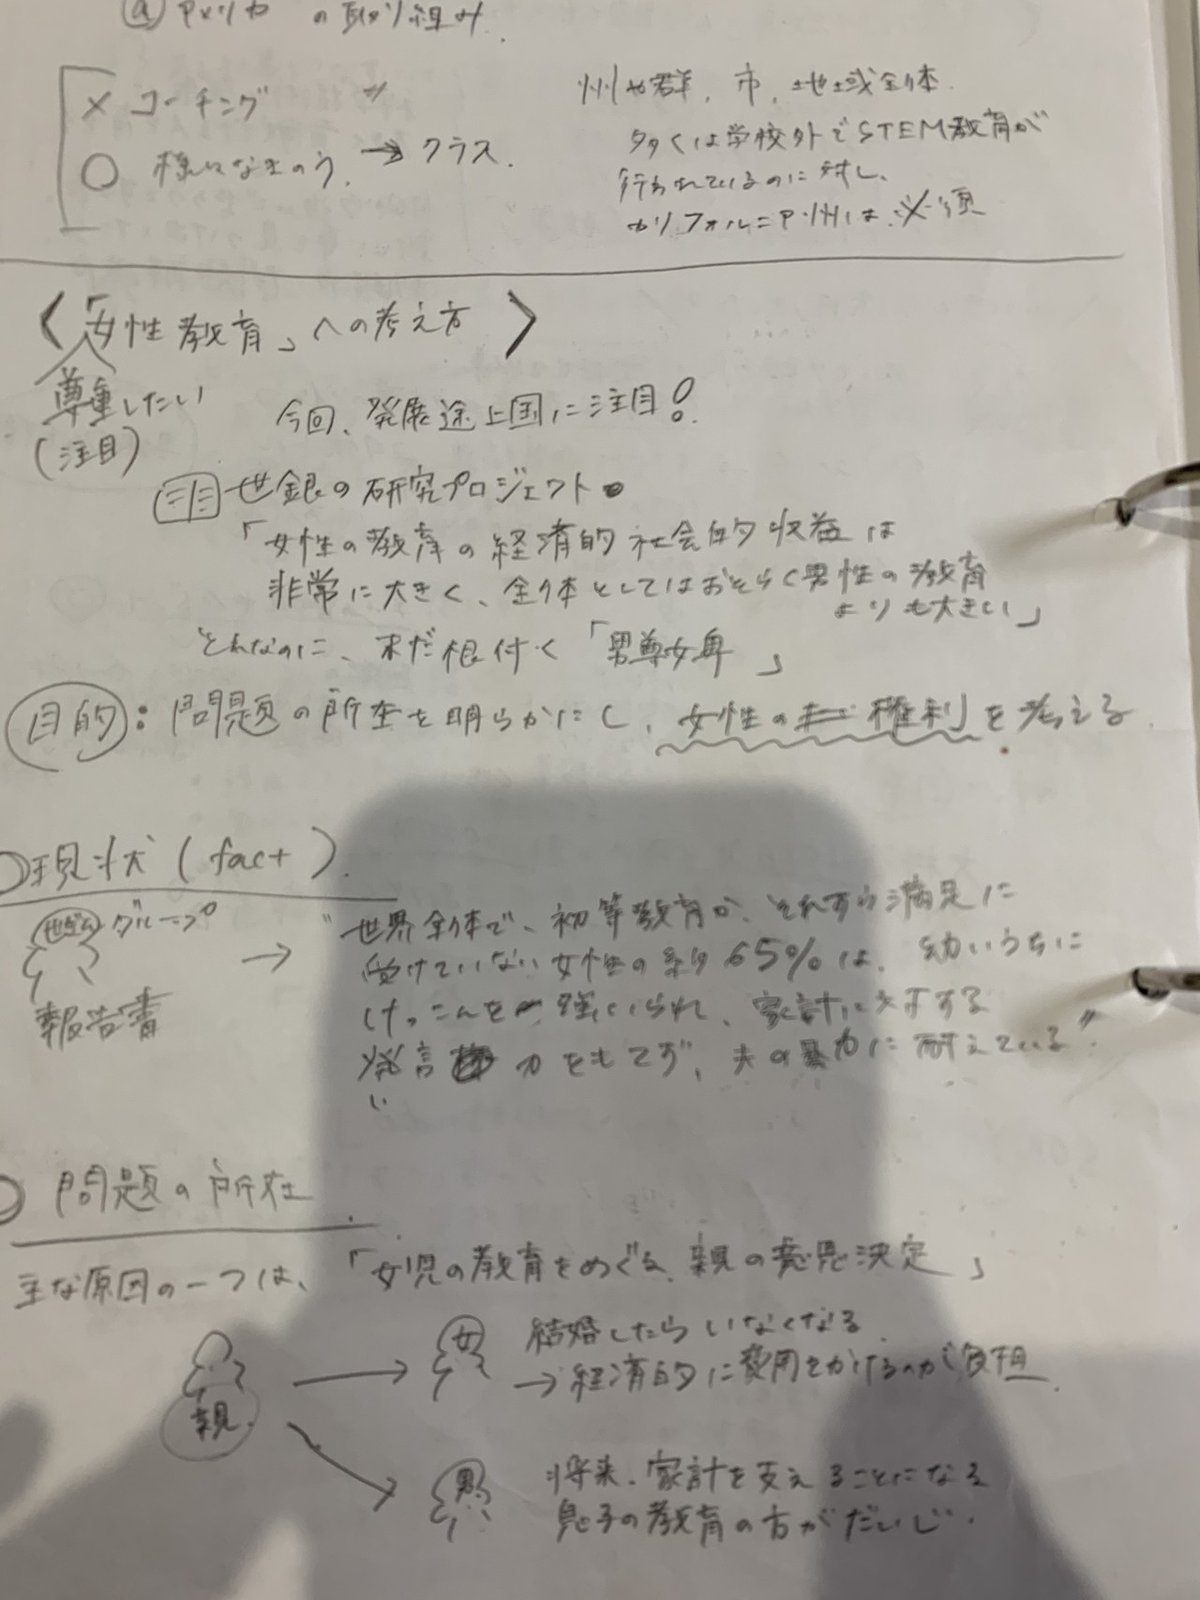 ⓐ アメリカ の取り組み
× コーチング
○ 様々なきのう、→ クラス
州や群、市、地域全体
多くは学校外でSTEM教育が
行われているのに対し、
カリフォルニア州は必須
〈「女性教育」への考え方〉
尊重したい
(注目)
今回、発展途上国に注目!
世銀の研究プロジェクト
「女性の教育の経済的社会的収益は
非常に大きく、全体としてはおそらく男性の教育
よりも大きい」
それなのに、未だ根付く「男尊女卑」
目的:問題の所在を明らかにし、女性の権利を考える
現状(fact)
世銀グループ
報告書
→ "世界全体で、初等教育か、それすら満足に
受けていない女性の約65%は、幼いうちに
けっこんを強いられ、家計に対する
発言力をもてず、夫の暴力に耐えている"
問題の所在
主な原因の一つは、「女児の教育をめぐる、親の意思決定」
親
女 結婚したらいなくなる
→経済的に費用をかけるのが負担
男 将来、家計を支えることになる
息子の教育の方がだいじ.